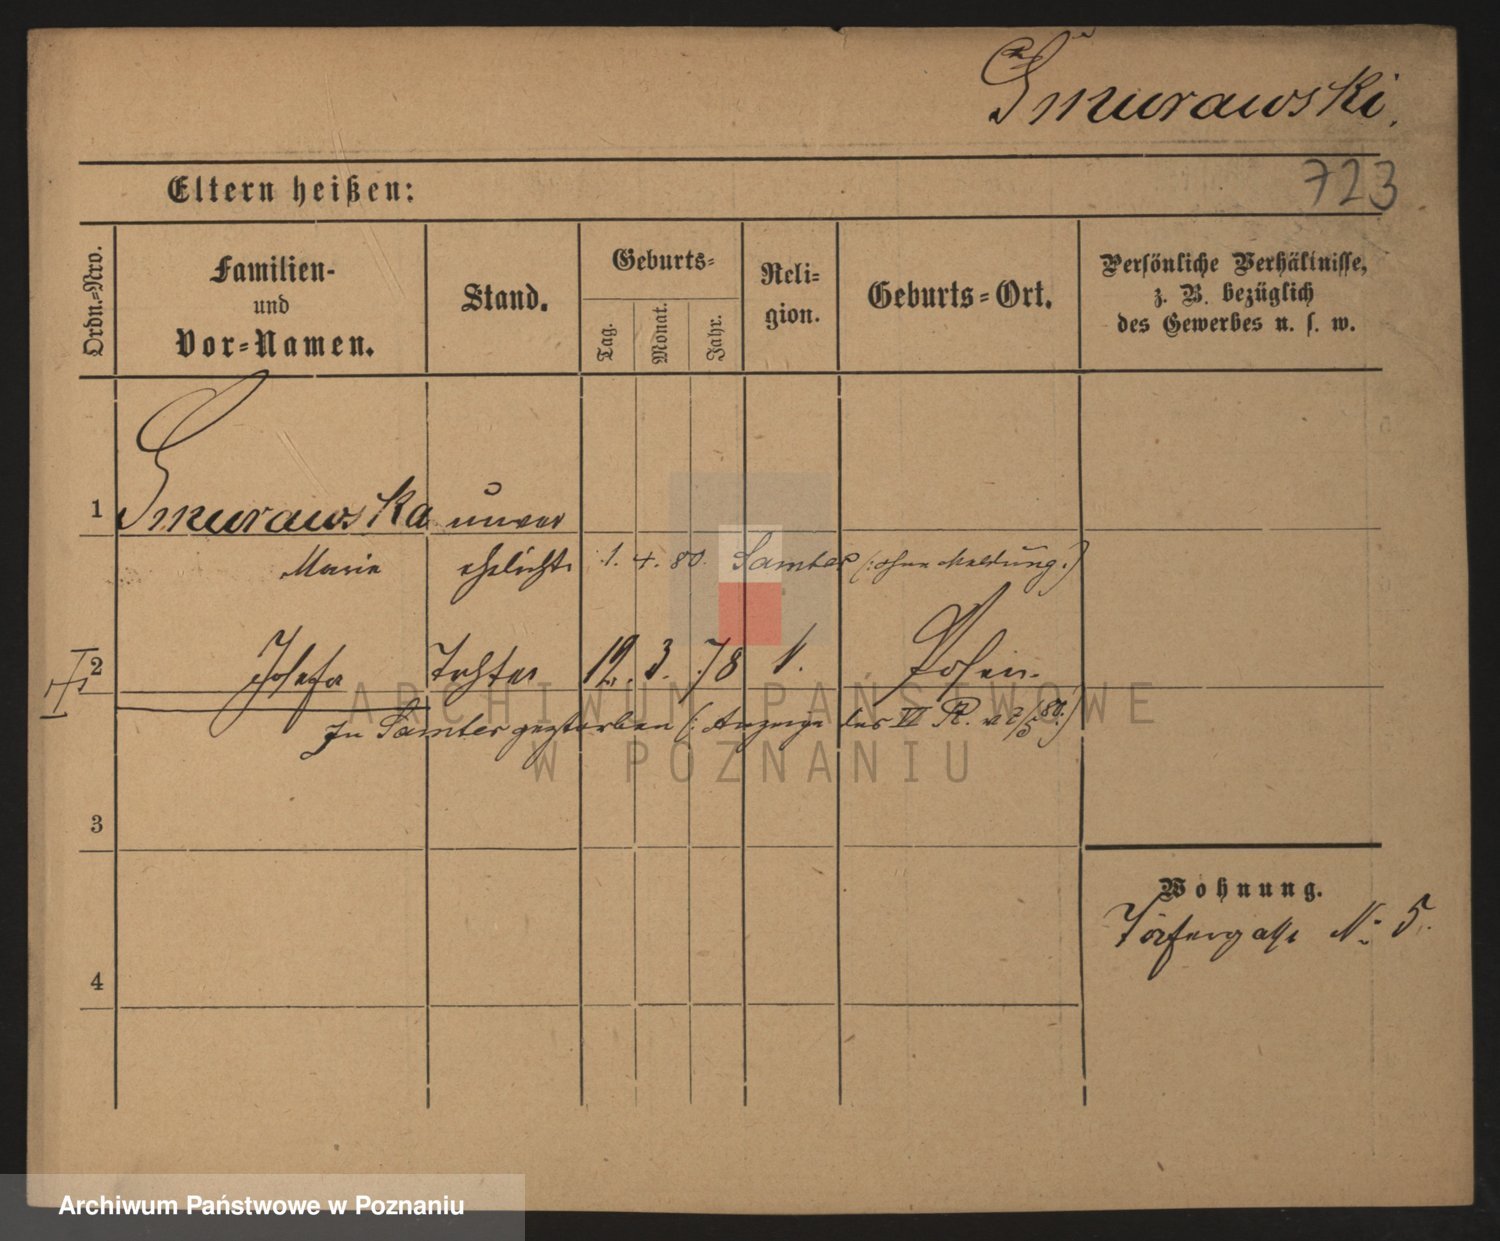 Smurawski.
723
Eltern heißen:
Ordn.=Nro.
Familien-
und
Vor=Namen.
Stand.
Geburts=
Tag.
Monat.
Jahr.
Reli=
gion.
Geburts=Ort.
Persönliche Verhältnisse,
z. B. bezüglich
des Gewerbes u. s. w.
1 Smurawska unver
Marie ehelichte 1. 4. 80. Samter (: ohne Meldung :)
2 Josefa Tochter 12. 3. 78 Posen.
In Samter gestorben (: Anzeige des VI R. v 2/5 80 :)
3
Wohnung.
No 5.
4
ARCHIWUM PAŃSTWOWE
W POZNANIU
Archiwum Państwowe w Poznaniu